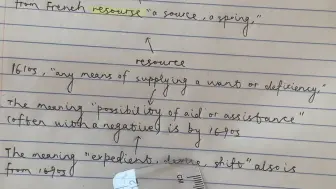 from French resourse "a source, a spring,"
resource
1610s, "any means of supplying a want or deficiency,"
The meaning "possibility of aid or assistance"
(often with a negative) is by 1690s
The meaning "expedient, device, shift" also is
from 1690s